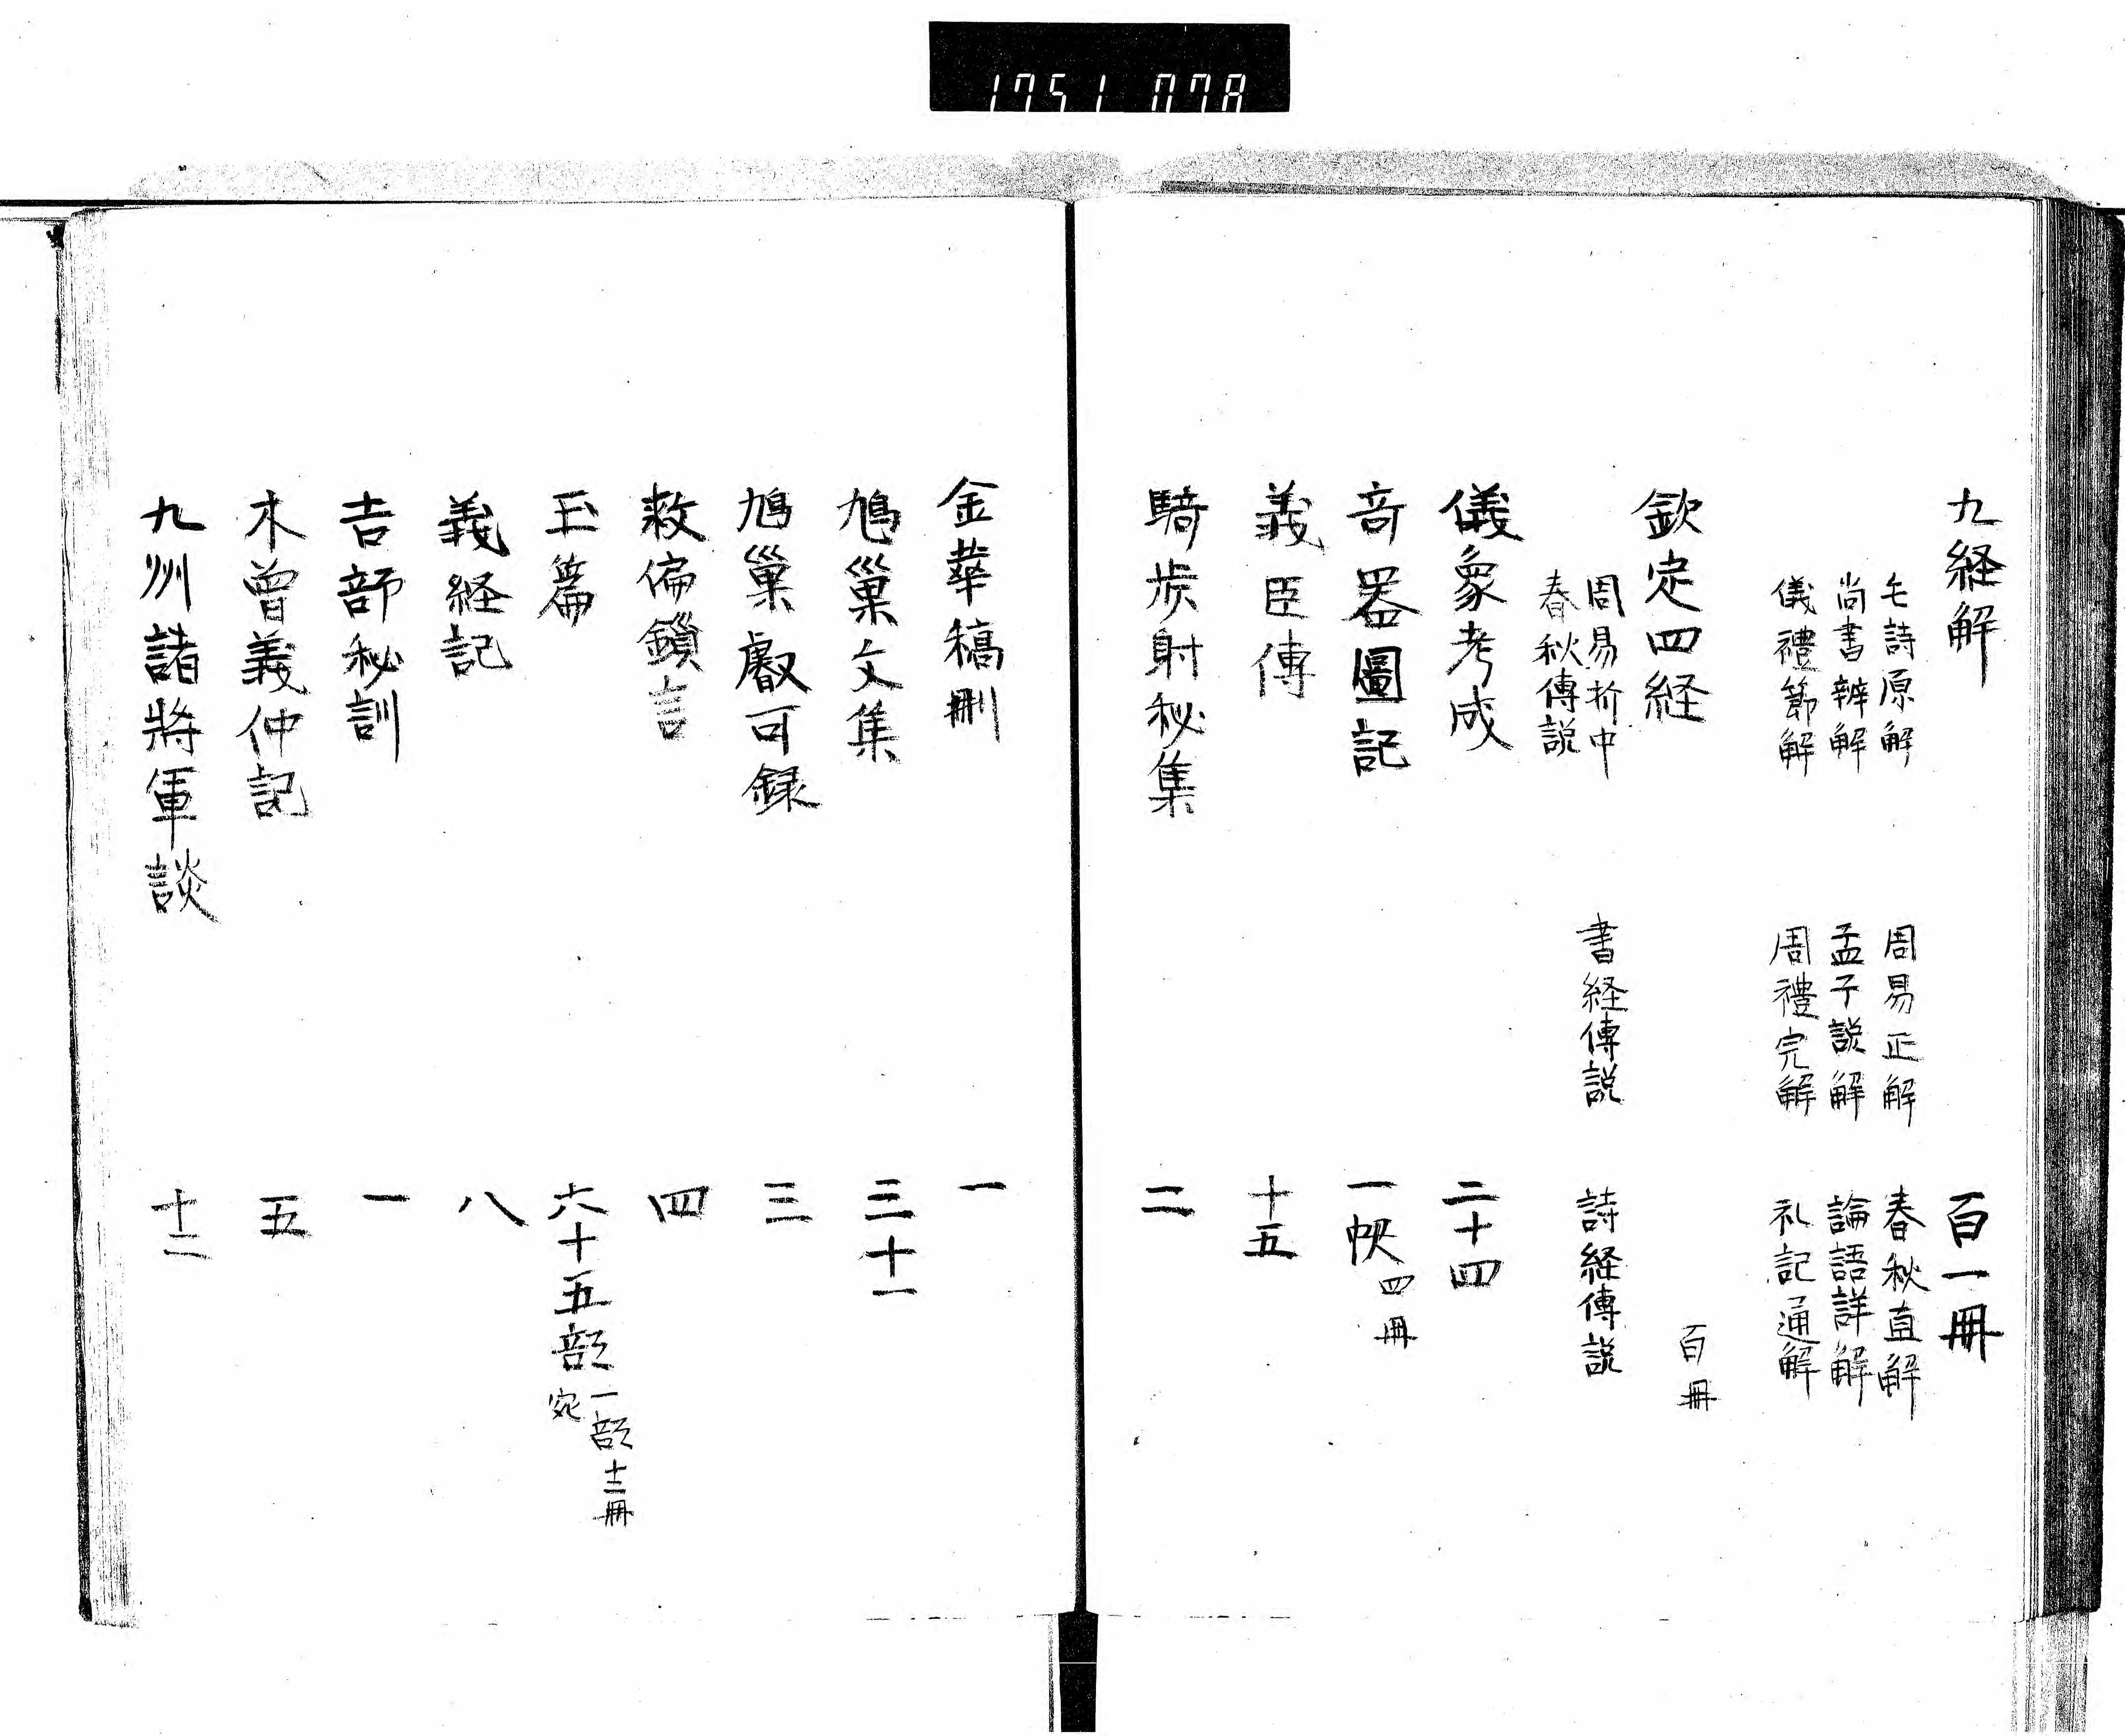 1751 078
九経解 百一冊
毛詩原解 周易正解 春秋直解
尚書辨解 孟子説解 論語詳解
儀禮節解 周禮完解 礼記通解
欽定四経 百冊
周易折中 書経傳説 詩経傳説
春秋傳説
儀象考成 二十四
奇器圖記 一帙 四冊
義臣傳 十五
騎歩射秘集 二
金華稿刪 一
鳩巣文集 三十一
鳩巣叡可録 三
救偏鎖言 四
玉篇 六十五部 一部十三冊
宛
義経記 八
吉部秘訓 一
木曽義仲記 五
九州諸將軍談 十二